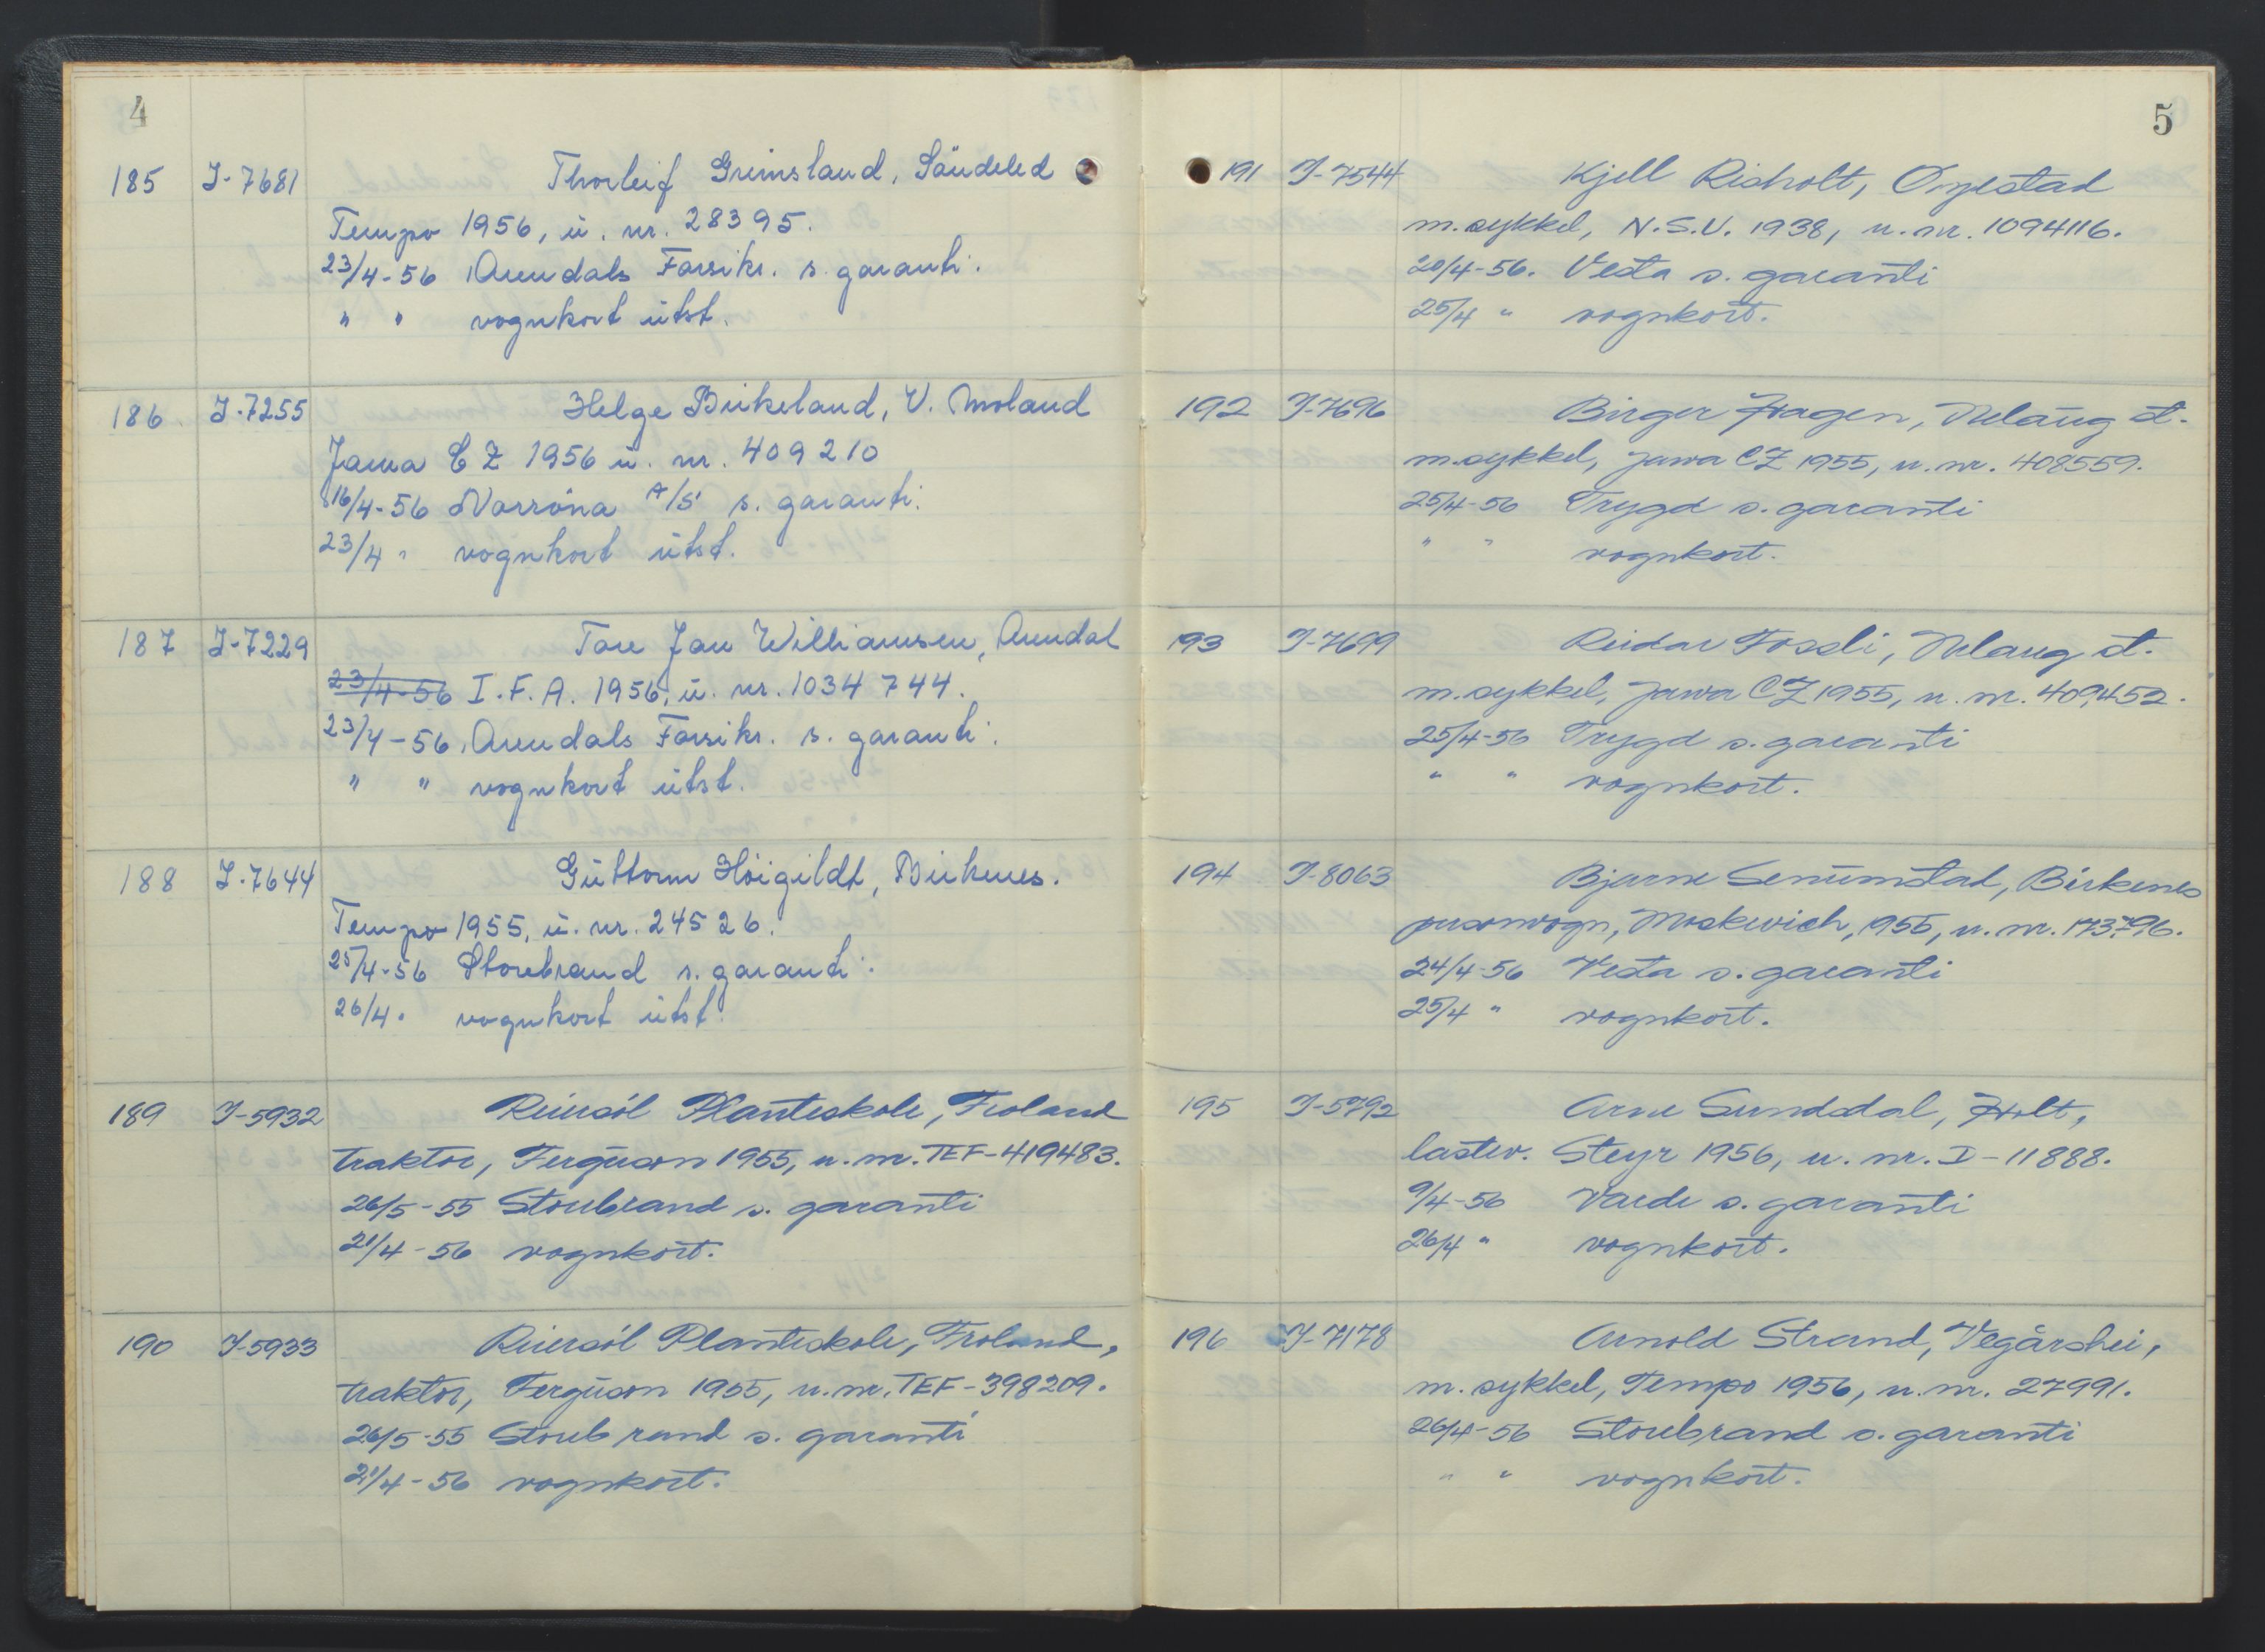 4
185 I-7681 Thorleif Grimsland, Söndeled
Tempo 1956, u. nr. 28395.
23/4-56 Arendals Forsikr. s. garanti.
" " vognkort utst.
186 I-7255 Helge Birkeland, V. Moland
Jawa CZ 1956 u. nr. 409210
16/4-56 Norröna A/S s. garanti.
23/4 " vognkort utst.
187 I-7229 Tore Jan Williamsen, Arendal
23/4-56 I.F.A. 1956, u. nr. 1034744.
23/4-56 Arendals Forsikr. s. garanti.
" " vognkort utst.
188 I-7644 Guttorm Höigildt, Birkenes.
Tempo 1955, u. nr. 24526.
25/4-56 Storebrand s. garanti.
26/4 " vognkort utst.
189 I-5932 Reiersöl Planteskole, Froland
traktor, Ferguson 1955, u. nr. TEF-419483.
26/5-55 Storebrand s. garanti
21/4-56 vognkort.
190 I-5933 Reiersöl Planteskole, Froland,
traktor, Ferguson 1955, u. nr. TEF-398209.
26/5-55 Storebrand s. garanti
21/4-56 vognkort.
5
191 I-7544 Kjell Risholt, Öyestad
m.sykkel, N.S.U. 1938, u. nr. 1094116.
20/4-56. Vesta s. garanti
25/4 " vognkort.
192 I-7696 Birger Hagen, Nelaug st.
m.sykkel, Jawa CZ 1955, u. nr. 408559.
25/4-56 Trygd s. garanti
" " vognkort.
193 I-7699 Reidar Fossli, Nelaug st.
m.sykkel, Jawa CZ 1955, u. nr. 409452.
25/4-56 Trygd s. garanti
" " vognkort.
194 I-8063 Bjarne Senumstad, Birkenes
personvogn, Moskwich, 1955, u. nr. 173796.
24/4-56 Vesta s. garanti
25/4 " vognkort.
195 I-5792 Arne Sundsdal, Holt,
lastev. Steyr 1956, u. nr. I-11888.
9/4-56 Varde s. garanti
26/4 " vognkort.
196 I-7178 Arnold Strand, Vegårshei,
m. sykkel, Tempo 1956, u. nr. 27991.
26/4-56 Storebrand s. garanti
" " vognkort.